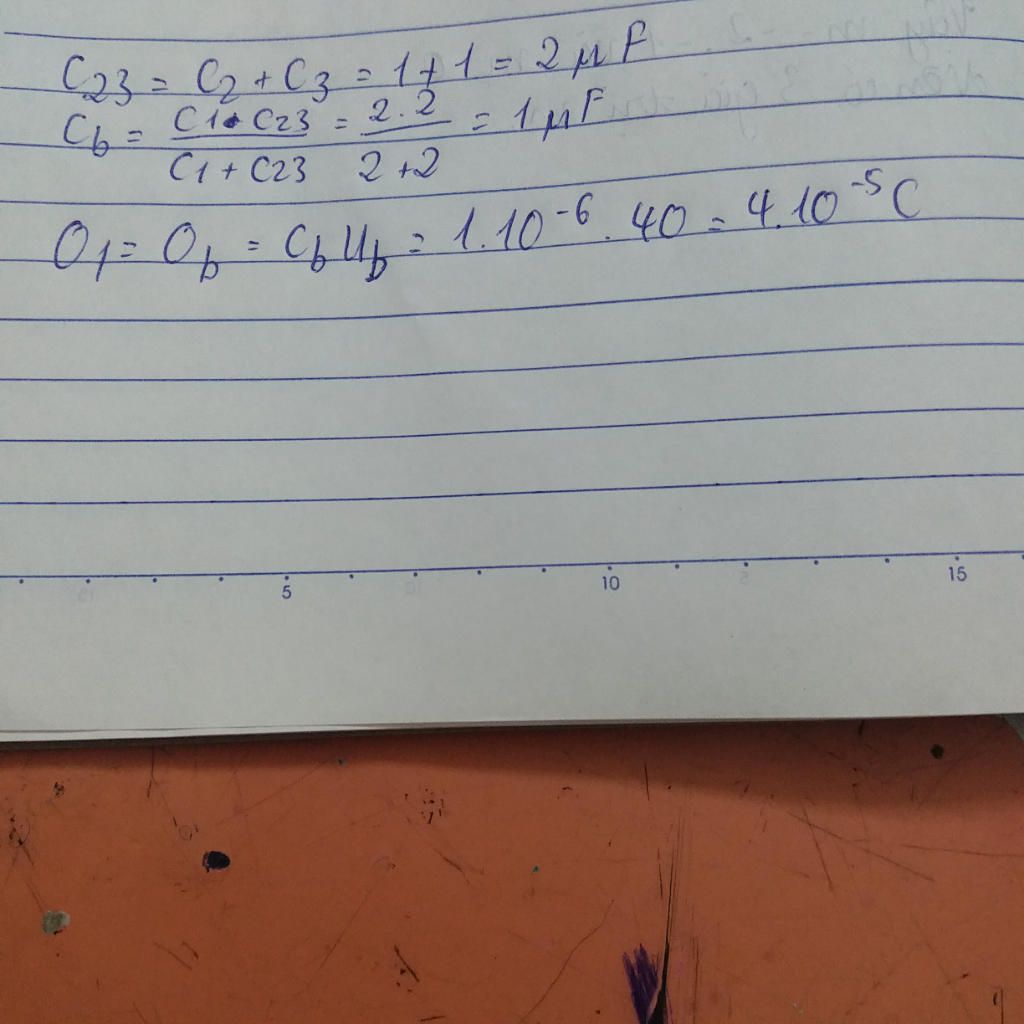 C23 = C2 + C3 = 1 + 1 = 2 μF
Cb = C1.C23 / C1 + C23 = 2.2 / 2 + 2 = 1 μF
Q1 = Qb = CbUb = 1.10^-6 . 40 = 4.10^-5 C
5 10 15